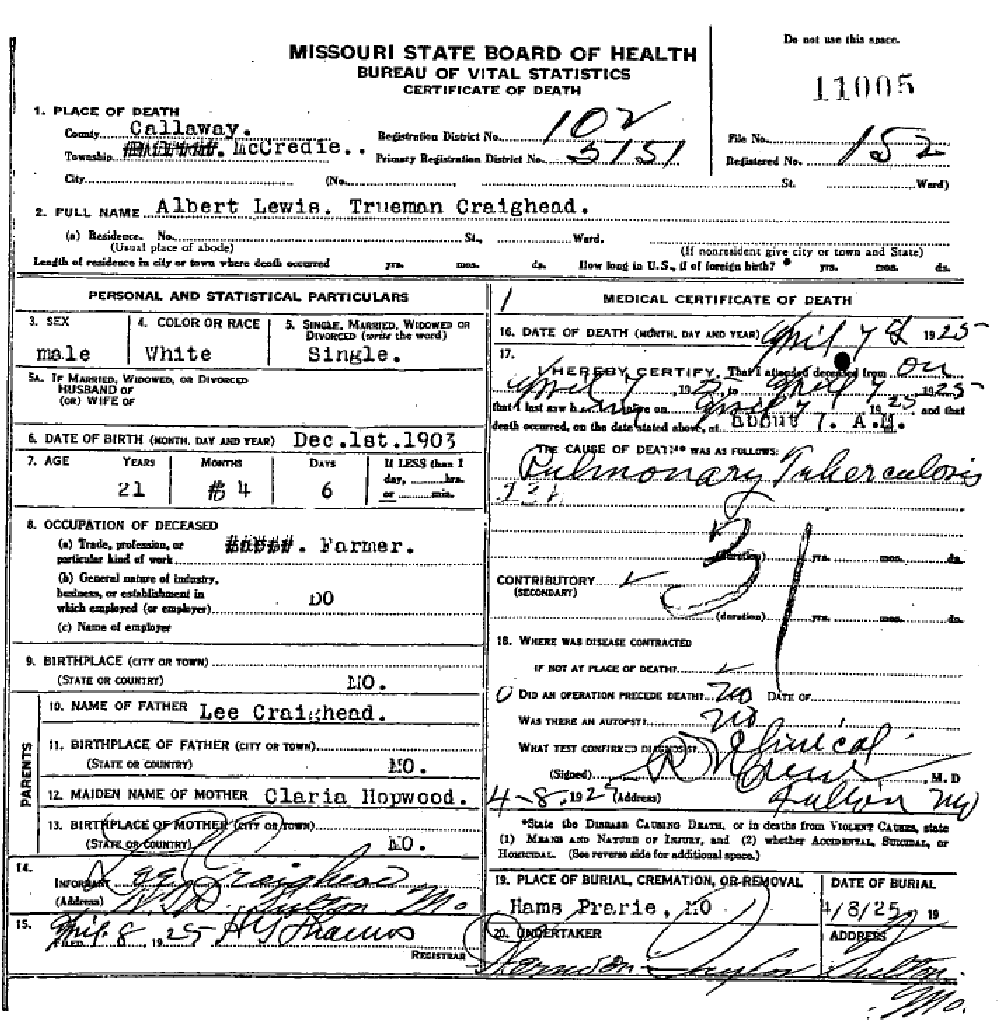 Do not use this space.
MISSOURI STATE BOARD OF HEALTH
BUREAU OF VITAL STATISTICS
CERTIFICATE OF DEATH
11005
1. PLACE OF DEATH
County Callaway. Registration District No. 102 File No.
Township McCredie.. Primary Registration District No. 5151 Registered No. 152
City (No. St. Ward)
2. FULL NAME Albert Lewis. Trueman Craighead.
(a) Residence. No. St., Ward.
(Usual place of abode) (If nonresident give city or town and State)
Length of residence in city or town where death occurred yrs. mos. ds. How long in U.S., if of foreign birth? yrs. mos. ds.
PERSONAL AND STATISTICAL PARTICULARS
3. SEX 4. COLOR OR RACE 5. SINGLE, MARRIED, WIDOWED OR
DIVORCED (write the word)
male White Single.
5A. IF MARRIED, WIDOWED, OR DIVORCED
HUSBAND OF
(OR) WIFE OF
6. DATE OF BIRTH (MONTH, DAY AND YEAR) Dec.1st.1903
7. AGE YEARS MONTHS DAYS If LESS than 1
day, hrs.
or min.
21 4 6
8. OCCUPATION OF DECEASED
(a) Trade, profession, or
particular kind of work Farmer.
(b) General nature of industry,
business, or establishment in
which employed (or employer) DO
(c) Name of employer
9. BIRTHPLACE (CITY OR TOWN)
(STATE OR COUNTRY) MO.
PARENTS
10. NAME OF FATHER Lee Craighead.
11. BIRTHPLACE OF FATHER (CITY OR TOWN)
(STATE OR COUNTRY) MO.
12. MAIDEN NAME OF MOTHER Claria Hopwood.
13. BIRTHPLACE OF MOTHER (CITY OR TOWN)
(STATE OR COUNTRY) MO.
14.
INFORMANT Lee Craighead
(Address) Fulton Mo
15.
FILED April 8 1925
REGISTRAR
1
MEDICAL CERTIFICATE OF DEATH
16. DATE OF DEATH (MONTH, DAY AND YEAR) April 7 1925
17.
I HEREBY CERTIFY, That I attended deceased from on
April 7, 1925, to April 7, 1925
that I last saw h alive on April 7, 1925 and that
death occurred, on the date stated above, at about 7. A.M.
THE CAUSE OF DEATH* WAS AS FOLLOWS:
Pulmonary Tuberculosis
31
(duration) yrs. mos. ds.
CONTRIBUTORY
(SECONDARY)
(duration) yrs. mos. ds.
18. WHERE WAS DISEASE CONTRACTED
IF NOT AT PLACE OF DEATH?
0 DID AN OPERATION PRECEDE DEATH? no DATE OF
WAS THERE AN AUTOPSY? no
WHAT TEST CONFIRMED DIAGNOSIS? Clinical
(Signed) R N Crews M. D
4-8, 1925 (Address) Fulton Mo
*State the DISEASE CAUSING DEATH, or in deaths from VIOLENT CAUSES, state
(1) MEANS AND NATURE OF INJURY, and (2) whether ACCIDENTAL, SUICIDAL, or
HOMICIDAL. (See reverse side for additional space.)
19. PLACE OF BURIAL, CREMATION, OR REMOVAL DATE OF BURIAL
Hams Prarie, MO 4/8/25. 19
20. UNDERTAKER ADDRESS
Taylor Fulton
Mo.